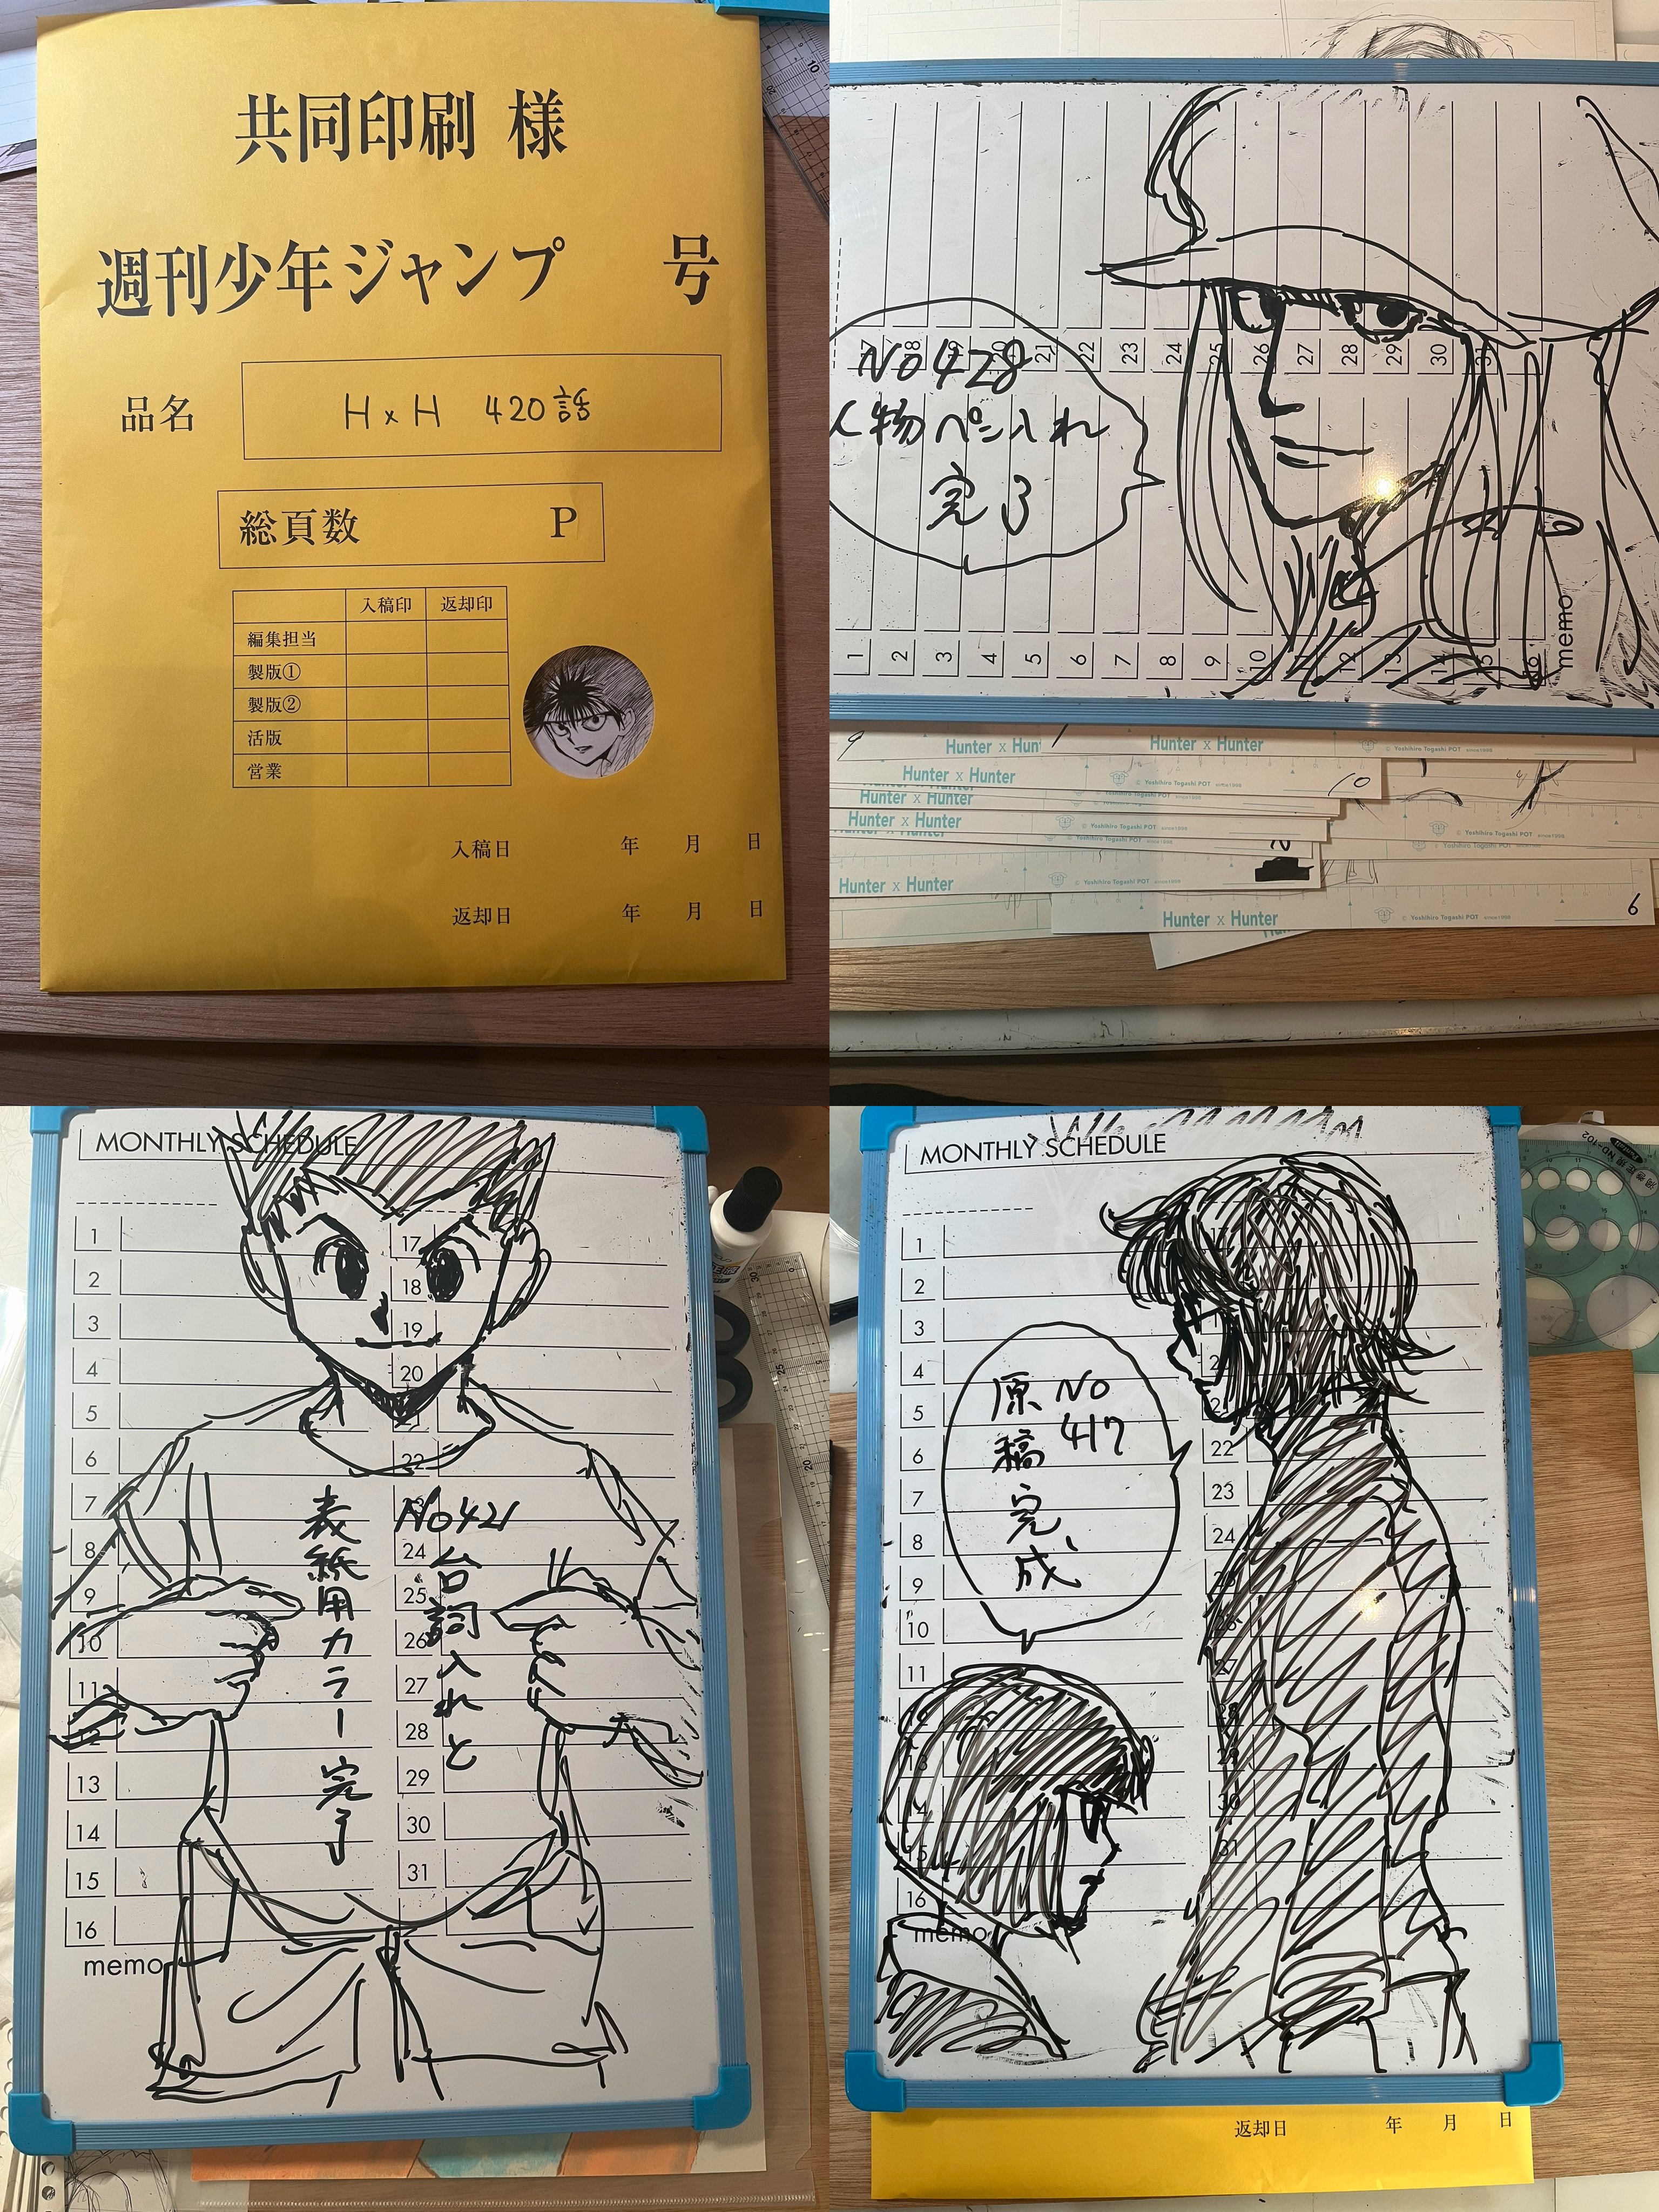 共同印刷 様
週刊少年ジャンプ 号
品名 H×H 420話
総頁数 P
入稿印 返却印
編集担当
製版①
製版②
活版
営業
入稿日 年 月 日
返却日 年 月 日
No428
人物ペン入れ
完了
18
21
22
23
24
25
26
27
28
29
30
31
1
2
3
4
5
6
7
8
9
10
12
13
14
15
16
memo
9
Hunter x Hunter
Hunter x Hunter
Hunter x Hunter
© Yoshihiro Togashi POT since1998
10
Hunter x Hunter
Hunter x Hunter
© Yoshihiro Togashi POT since1998
© Yoshihiro Togashi POT since1998
Hunter x Hunter
© Yoshihiro Togashi POT since1998
Hunter x Hunter
© Yoshihiro Togashi POT since1998
6
MONTHLY SCHEDULE
No421
台詞入れと
表紙用カラー完了
1
2
3
4
5
6
7
8
9
10
11
12
13
14
15
16
memo
17
18
19
20
22
24
25
26
27
28
29
30
31
MONTHLY SCHEDULE
No
417
原稿完成
1
2
3
4
5
6
7
8
9
10
11
13
14
15
16
memo
17
22
23
24
27
29
30
31
返却日 年 月 日